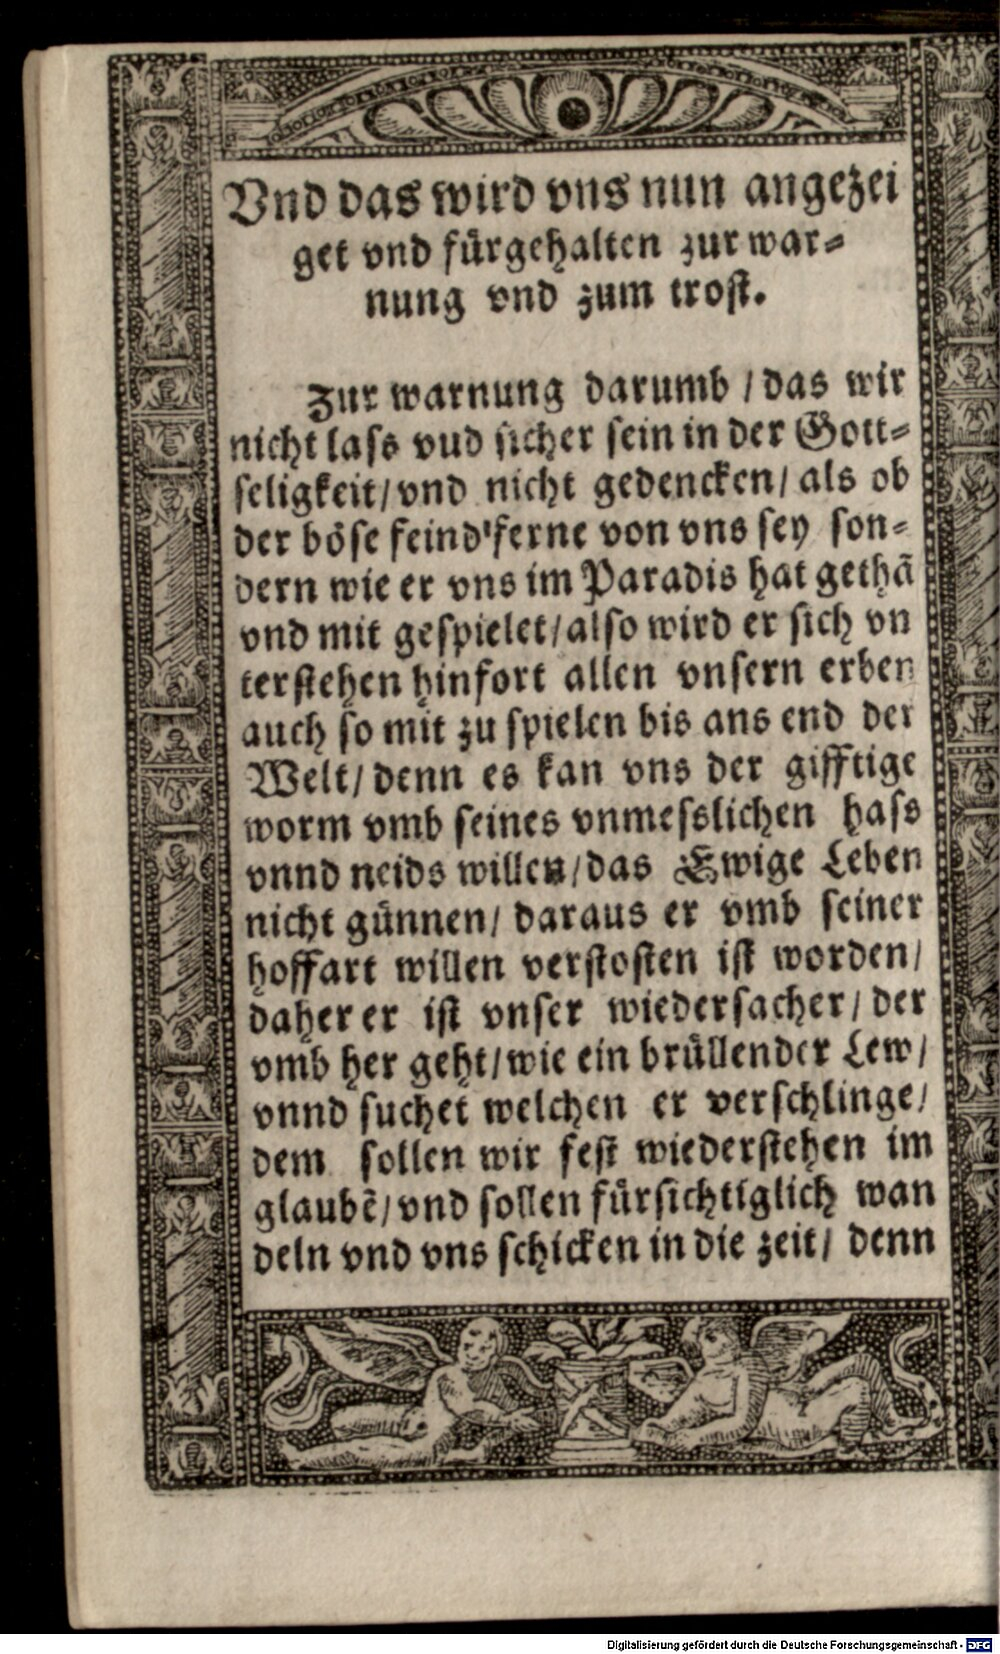 Vnd das wird vns nun angezei
get vnd fürgehalten zur war⸗
nung vnd zum trost.
Zur warnung darumb / das wir
nicht lass vud sicher sein in der Gott⸗
seligkeit / vnd nicht gedencken / als ob
der böse feind'ferne von vns sey son⸗
dern wie er vns im Paradis hat gethã
vnd mit gespielet / also wird er sich vn
terstehen hinfort allen vnsern erben
auch so mit zu spielen bis ans end der
Welt / denn es kan vns der gifftige
worm vmb seines vnmesslichen hass
vnnd neids willen / das Ewige Leben
nicht günnen / daraus er vmb seiner
hoffart willen verstosten ist worden /
daher er ist vnser wiedersacher / der
vmb her geht / wie ein brüllender Lew /
vnnd suchet welchen er verschlinge /
dem sollen wir fest wiederstehen im
glaubẽ / vnd sollen fürsichtiglich wan
deln vnd vns schicken in die zeit / denn
Digitalisierung gefördert durch die Deutsche Forschungsgemeinschaft - DFG